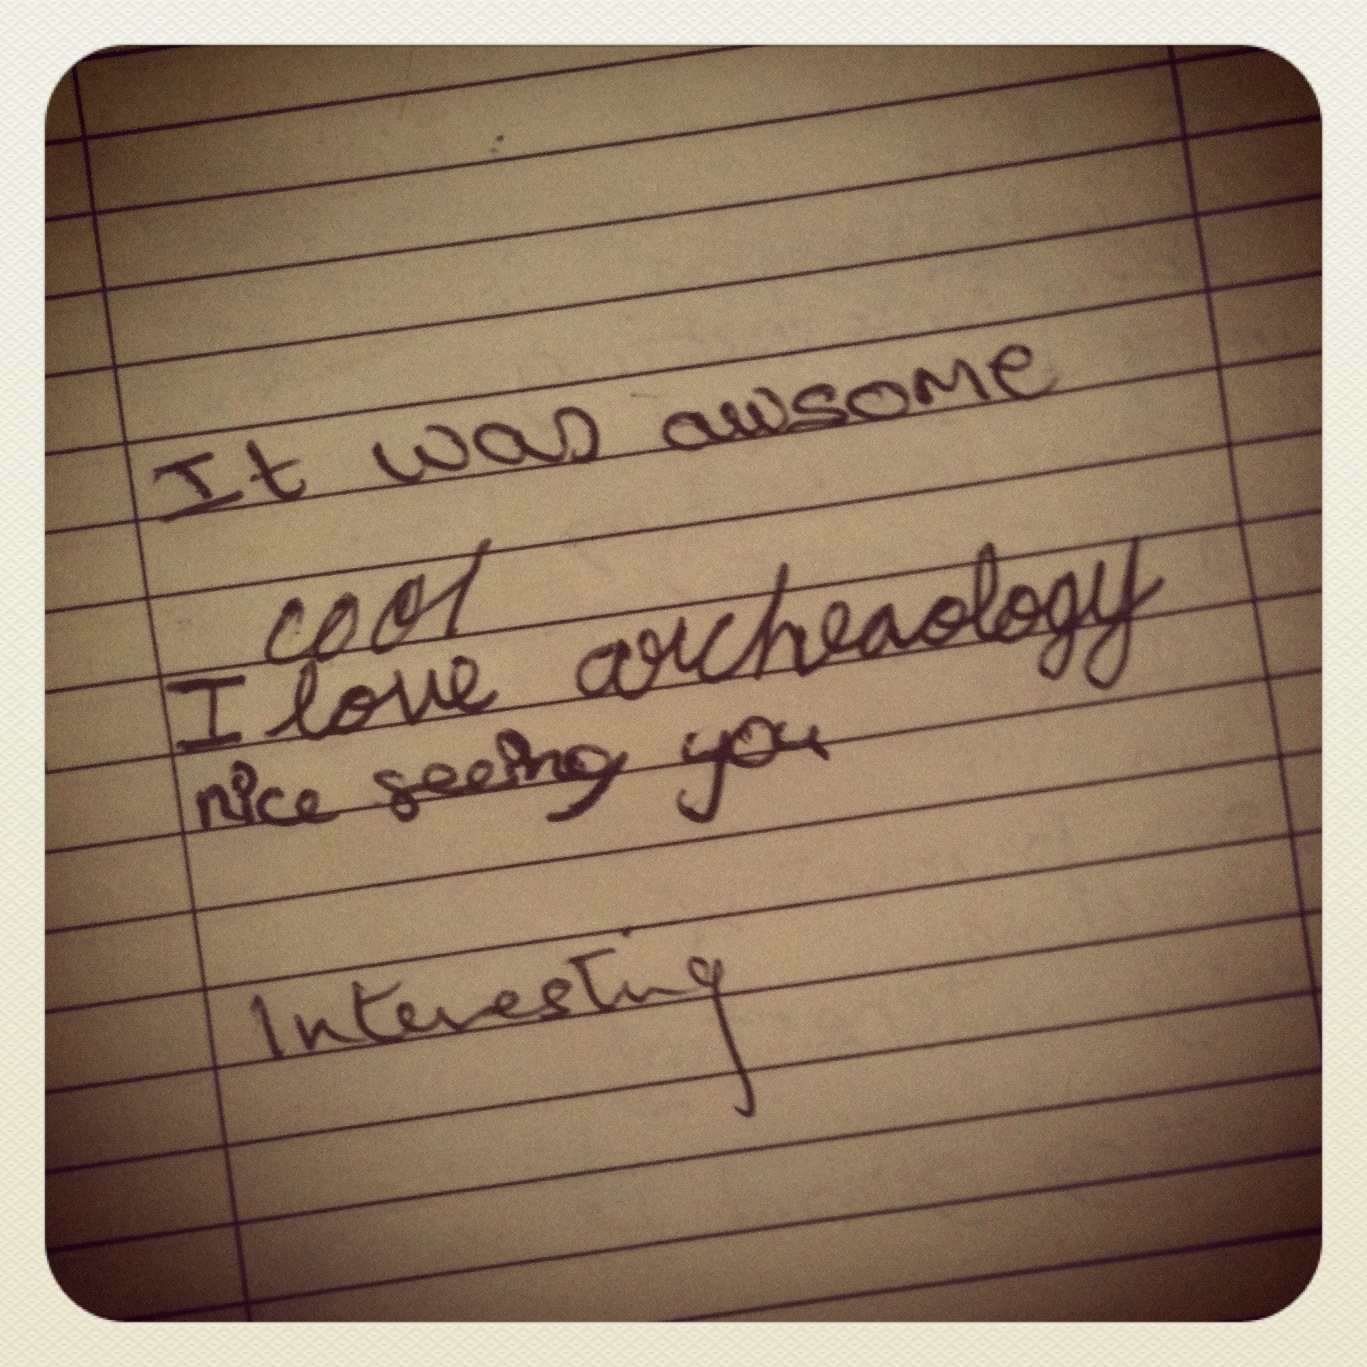 It was awsome
cool
I love archeaology
nice seeing you
Interesting